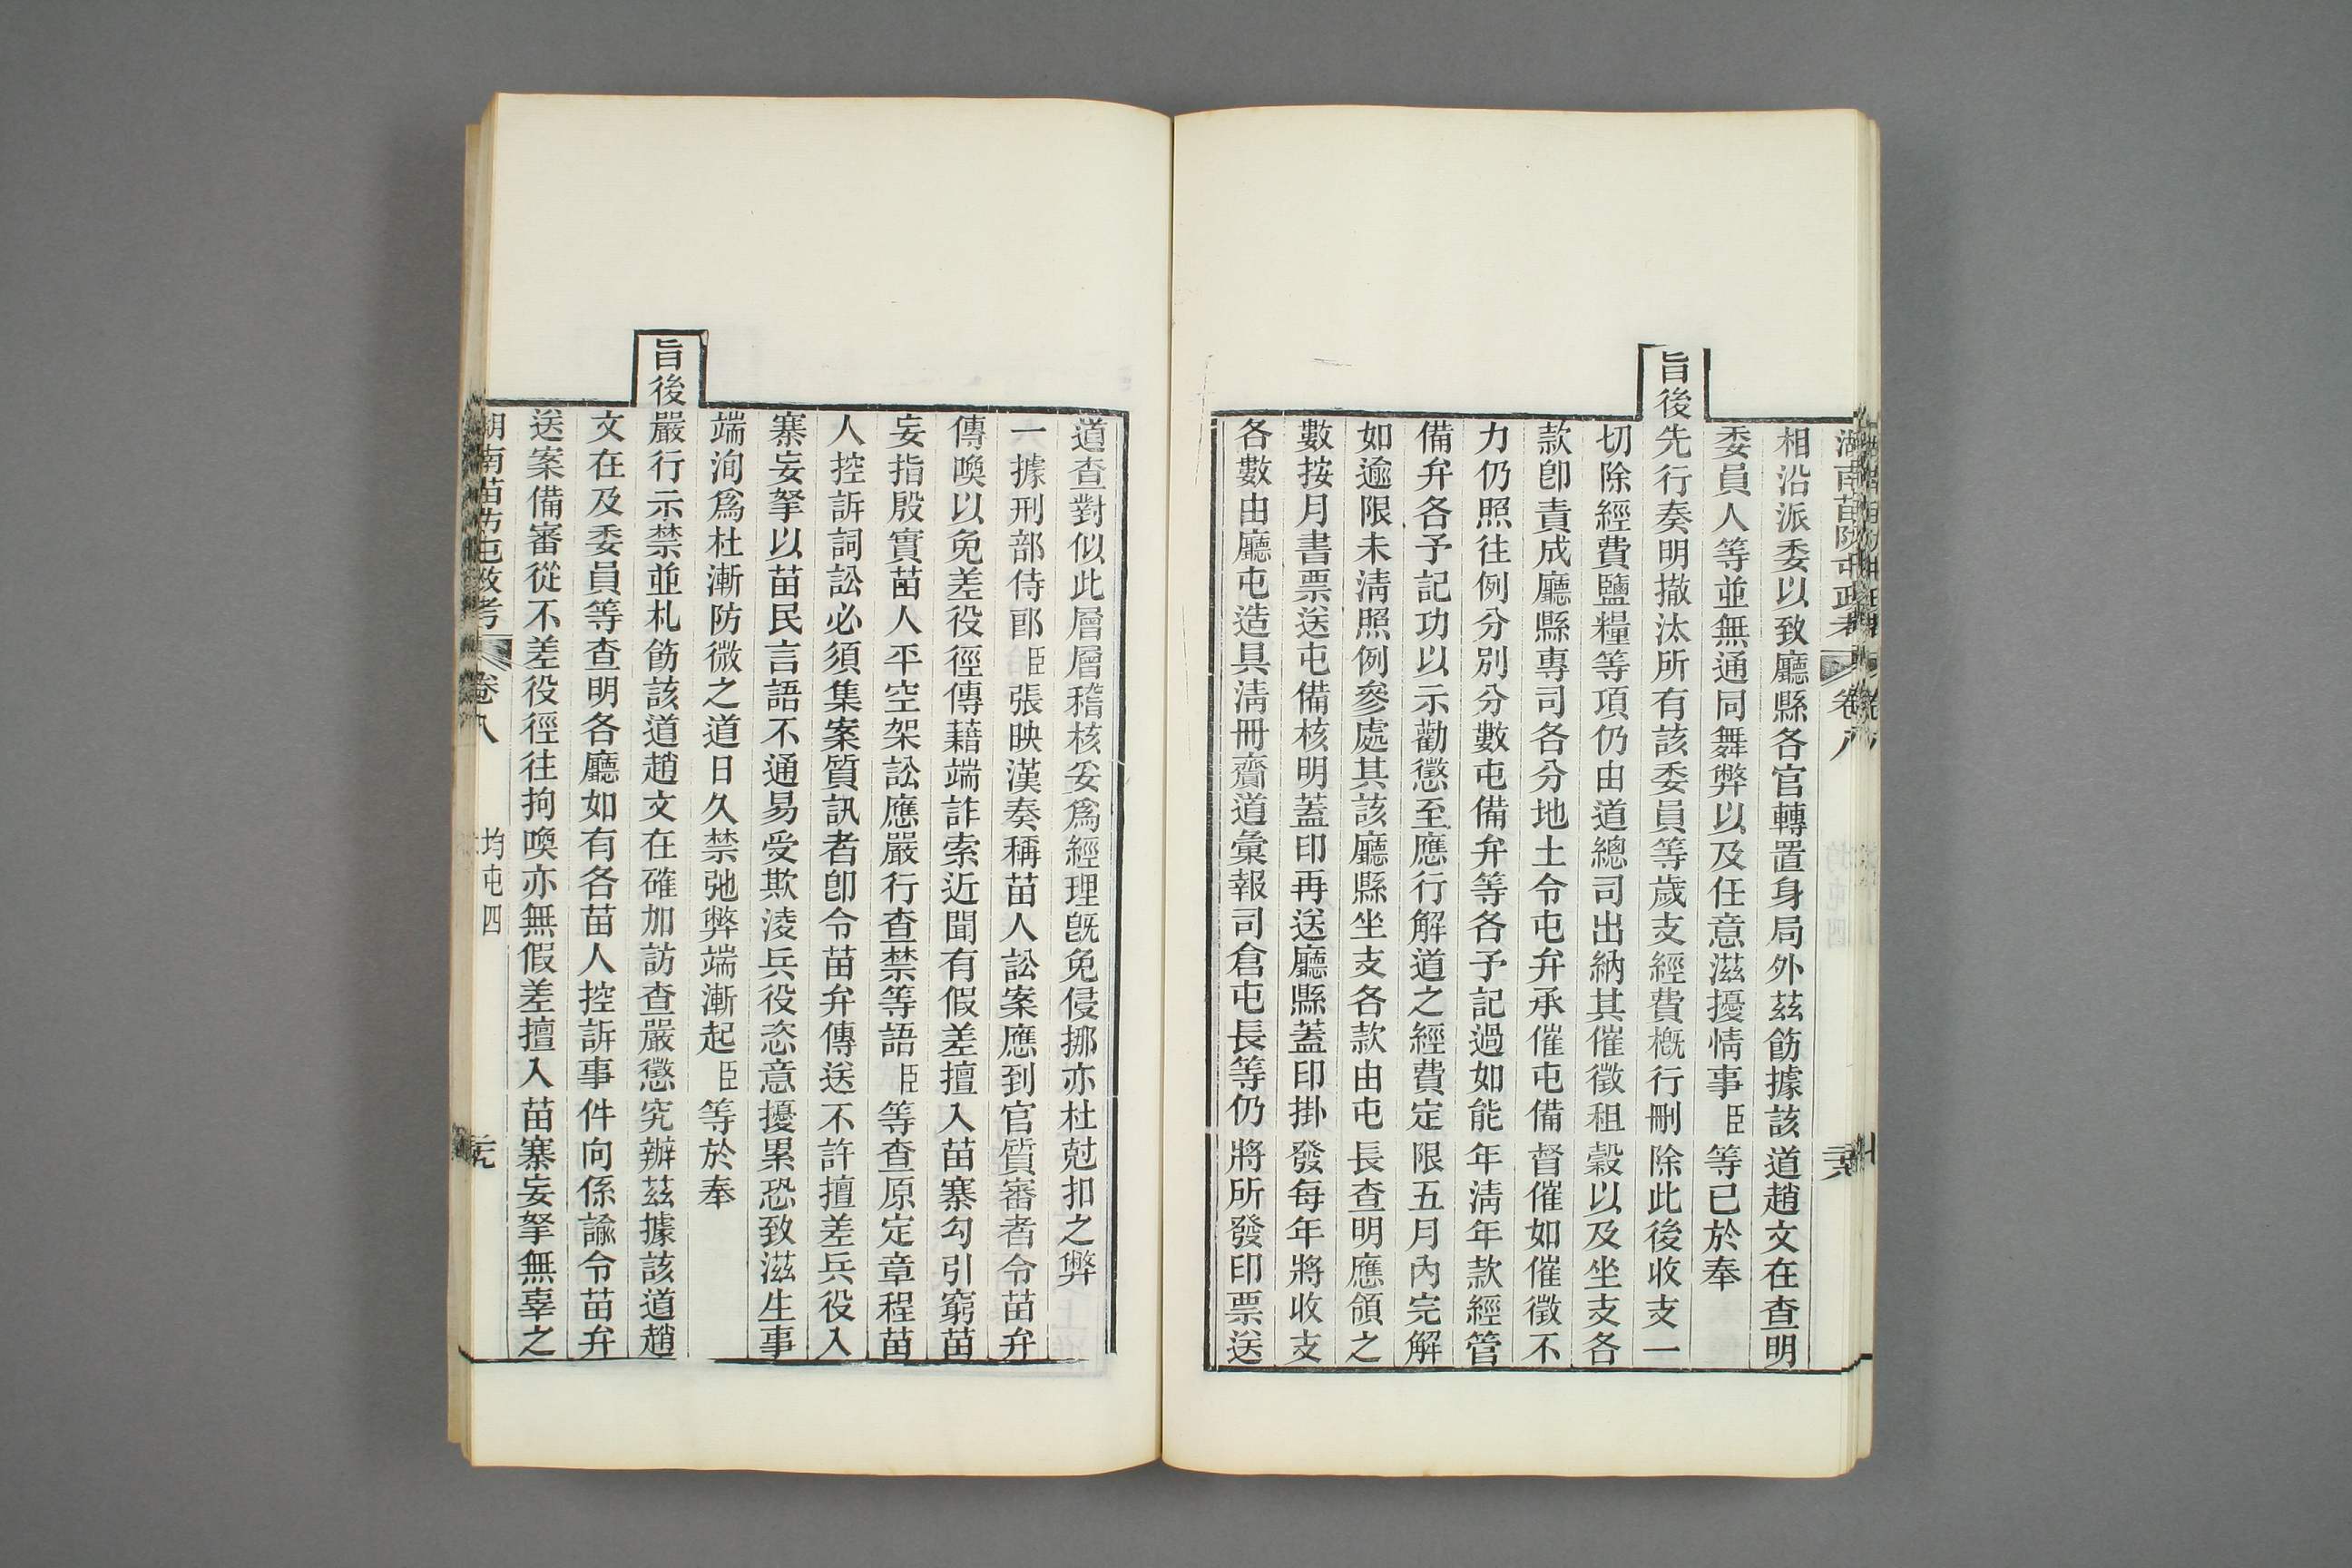 湖南苗防屯政考 卷八
相沿派委以致廳縣各官轉置身局外茲飭據該道趙文在查明
委員人等並無通同舞弊以及任意滋擾情事臣等已於奉
旨後先行奏明撤汰所有該委員等歲支經費概行刪除此後收支一
切除經費鹽糧等項仍由道總司出納其催徵租穀以及坐支各
款卽責成廳縣專司各分地土令屯弁承催屯備督催如催徵不
力仍照往例分別分數屯備弁等各予記過如能年清年款經管
備弁各予記功以示勸懲至應行解道之經費定限五月內完解
如逾限未清照例參處其該廳縣坐支各款由屯長查明應領之
數按月書票送屯備核明蓋印再送廳縣蓋印掛發每年將收支
各數由廳屯造具清冊齎道彙報司倉屯長等仍將所發印票送
道查對似此層層稽核妥爲經理旣免侵挪亦杜尅扣之弊
一據刑部侍郎臣張映漢奏稱苗人訟案應到官質審者令苗弁
傳喚以免差役徑傳藉端詐索近聞有假差擅入苗寨勾引窮苗
妄指殷實苗人平空架訟應嚴行查禁等語臣等查原定章程苗
人控訴詞訟必須集案質訊者卽令苗弁傳送不許擅差兵役入
寨妄拏以苗民言語不通易受欺淩兵役恣意擾累恐致滋生事
端洵爲杜漸防微之道日久禁弛弊端漸起臣等於奉
旨後嚴行示禁並札飭該道趙文在確加訪查嚴懲究辦茲據該道趙
文在及委員等查明各廳如有各苗人控訴事件向係諭令苗弁
送案備審從不差役徑往拘喚亦無假差擅入苗寨妄拏無辜之
湖南苗防屯政考 卷八 均屯四